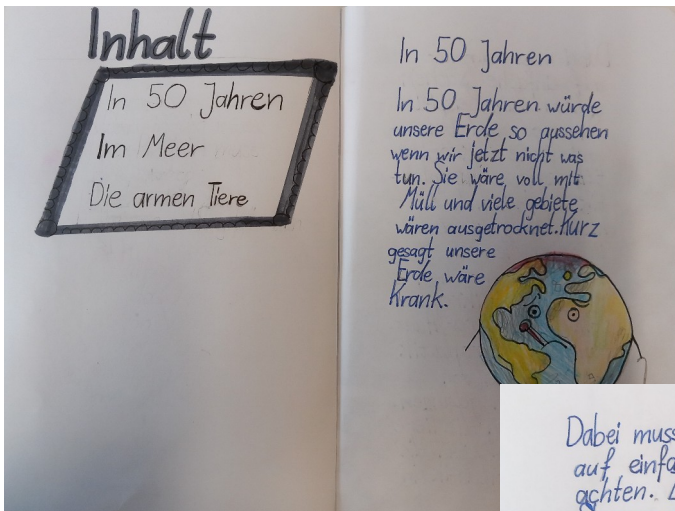 Inhalt
In 50 Jahren
Im Meer
Die armen Tiere
In 50 Jahren
In 50 Jahren würde
unsere Erde so aussehen
wenn wir jetzt nicht was
tun. Sie wäre voll mit
Müll und viele gebiete
wären ausgetrocknet. Kurz
gesagt unsere
Erde wäre
Krank.
Dabei
auf
achten.